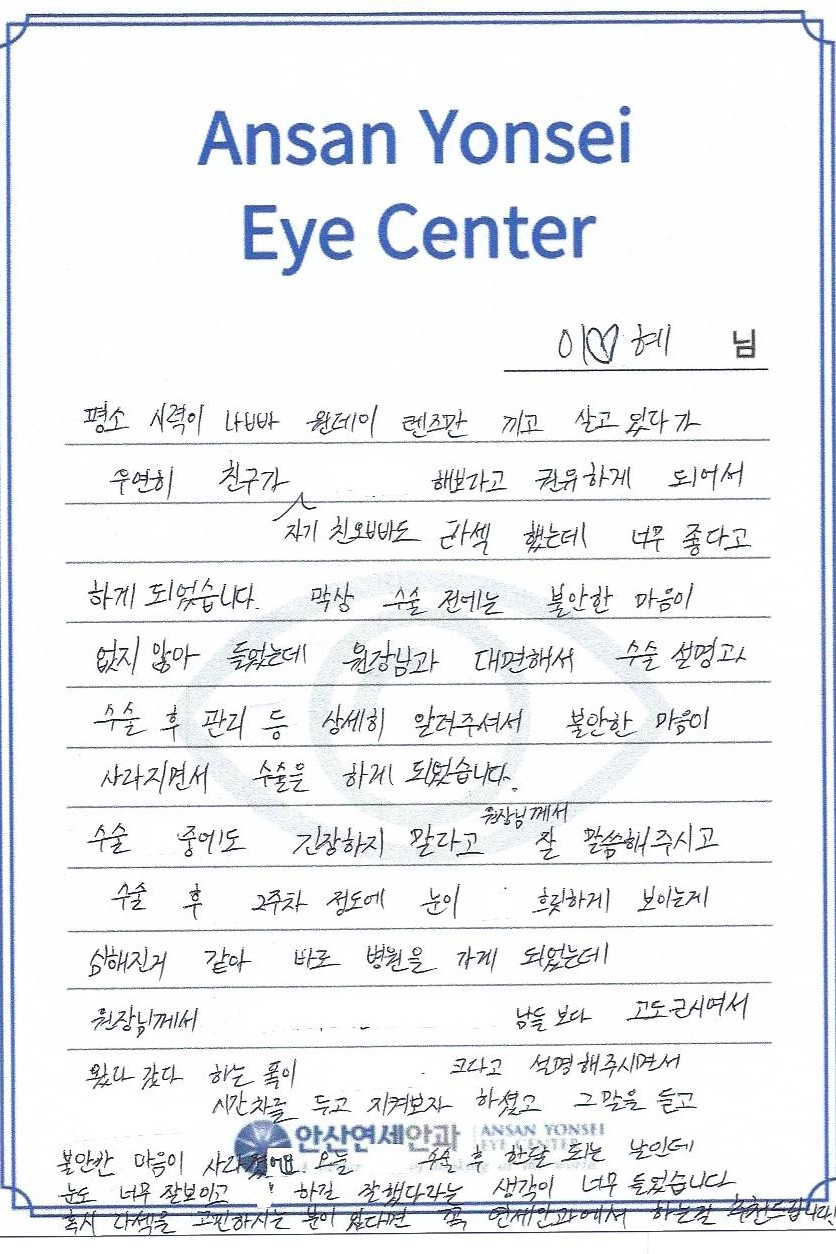 Ansan Yonsei
Eye Center
이♡혜 님
평소 시력이 나빠 원데이 렌즈만 끼고 살고 있다가
우연히 친구가 해보라고 권유하게 되어서
자기 친오빠도 라섹 했는데 너무 좋다고
하게 되었습니다. 막상 수술 전에는 불안한 마음이
없지 않아 들었는데 원장님과 대면해서 수술 설명과
수술 후 관리 등 상세히 알려주셔서 불안한 마음이
사라지면서 수술을 하게 되었습니다.
원장님께서
수술 중에도 긴장하지 말라고 잘 말씀해주시고
수술 후 2주차 정도에 눈이 흐릿하게 보이는게
심해진거 같아 바로 병원을 가게 되었는데
원장님께서 남들 보다 고도근시여서
왔다 갔다 하는 폭이 크다고 설명해주시면서
시간차를 두고 지켜보자 하셨고 그 말을 듣고
안산연세안과 ANSAN YONSEI
EYE CENTER
불안한 마음이 오늘 수술 후 한달 되는 날인데
눈도 너무 잘보이고 하길 잘했다라는 생각이 너무 들었습니다
혹시 라섹을 고민하시는 분이 있다면 꼭 연세안과에서 하는걸 추천드립니다!